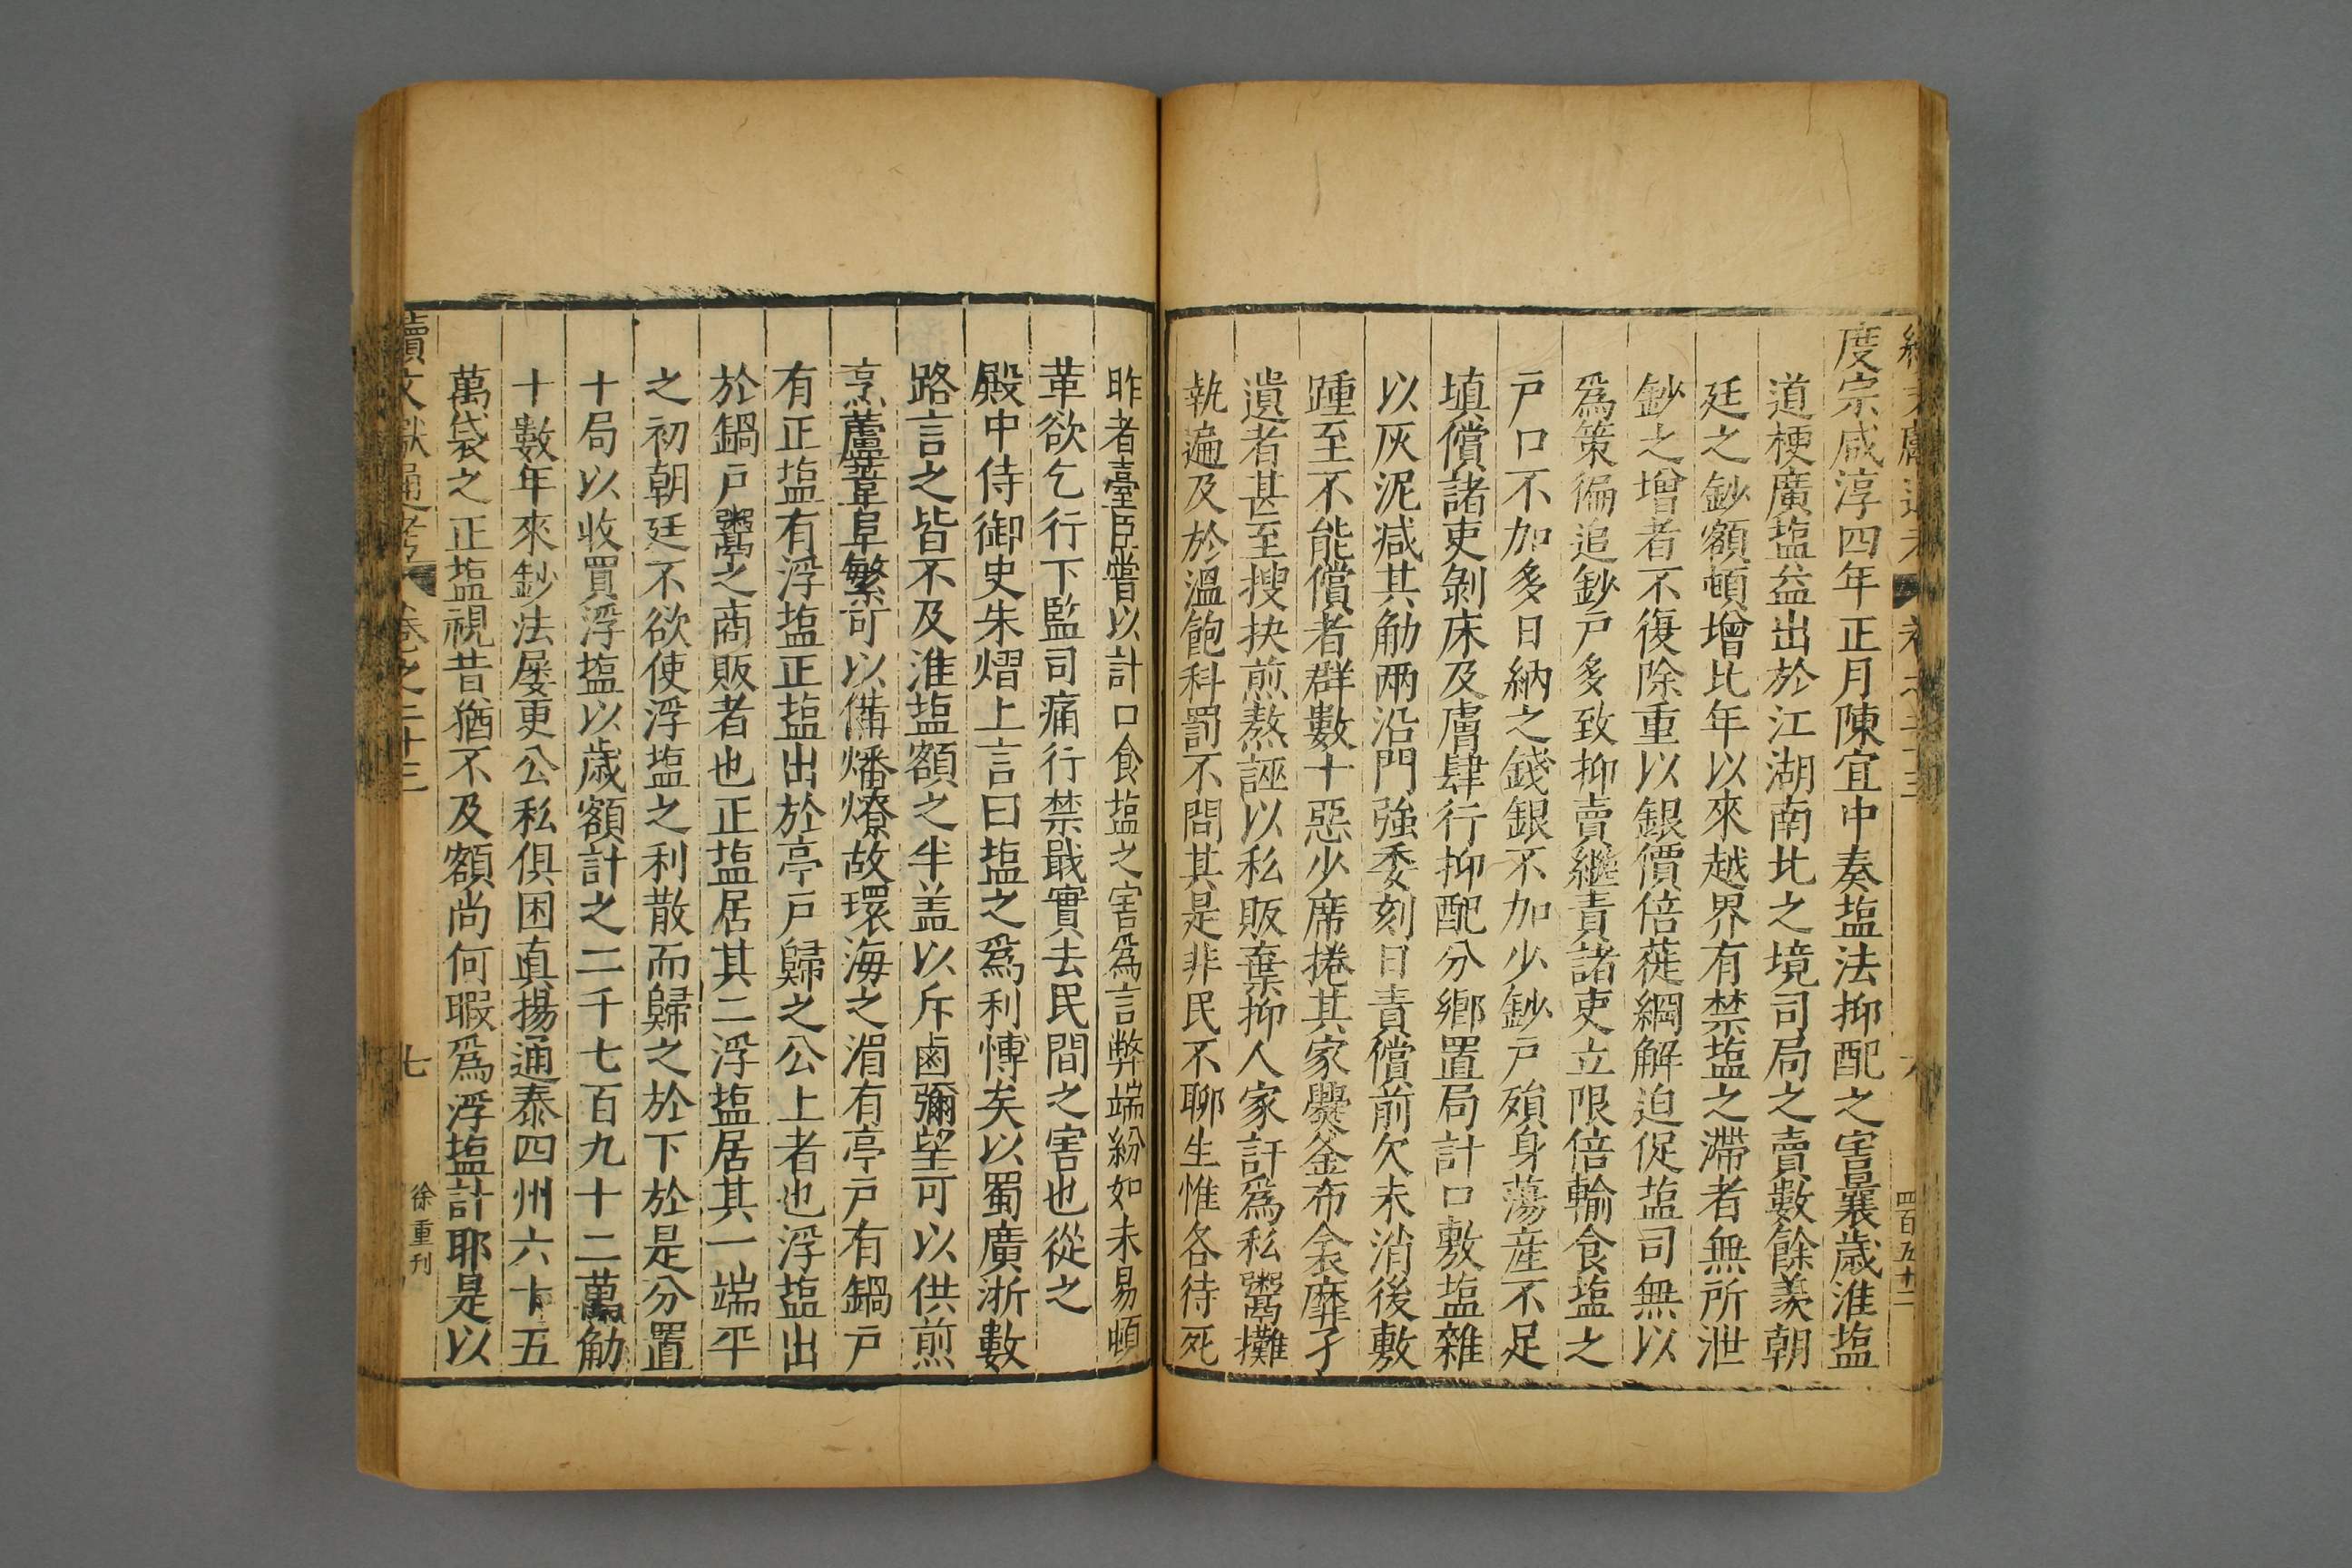 度宗咸淳四年正月陳宜中奏塩法抑配之害曩歲淮塩
道梗廣塩益出於江湖南北之境司局之賣數餘羨朝
廷之鈔額頓增比年以來越界有禁塩之滯者無所泄
鈔之增者不復除重以銀價倍蓰綱解迫促塩司無以
爲策徧追鈔戸多致抑賣繼責諸吏立限倍輸食塩之
戸口不加多日納之錢銀不加少鈔戸殞身蕩産不足
填償諸吏剝床及膚肆行抑配分鄉置局計口敷塩雜
以灰泥減其觔兩沿門強委刻日責償前欠未消後敷
踵至不能償者群數十惡少席捲其家爨釜布衾靡孑
遺者甚至搜抉煎熬誣以私販棄抑人家訐爲私鬻攤
執遍及於溫飽科罰不問其是非民不聊生惟各待死
昨者臺臣嘗以計口食塩之害爲言弊端紛如未易頓
革欲乞行下監司痛行禁戢實去民間之害也從之
殿中侍御史朱熠上言曰塩之爲利慱矣以蜀廣浙數
路言之皆不及淮塩額之半盖以斥鹵彌望可以供煎
烹蘆葦阜繁可以備燔燎故環海之湄有亭戸有鍋戸
有正塩有浮塩正塩出於亭戸歸之公上者也浮塩出
於鍋戸鬻之商販者也正塩居其二浮塩居其一端平
之初朝廷不欲使浮塩之利散而歸之於下於是分置
十局以收買浮塩以歲額計之二千七百九十二萬觔
十數年來鈔法屡更公私俱困真揚通泰四州六十五
萬袋之正塩視昔猶不及額尚何暇爲浮塩計耶是以
續文獻通考 卷之二十三 七 徐重刊